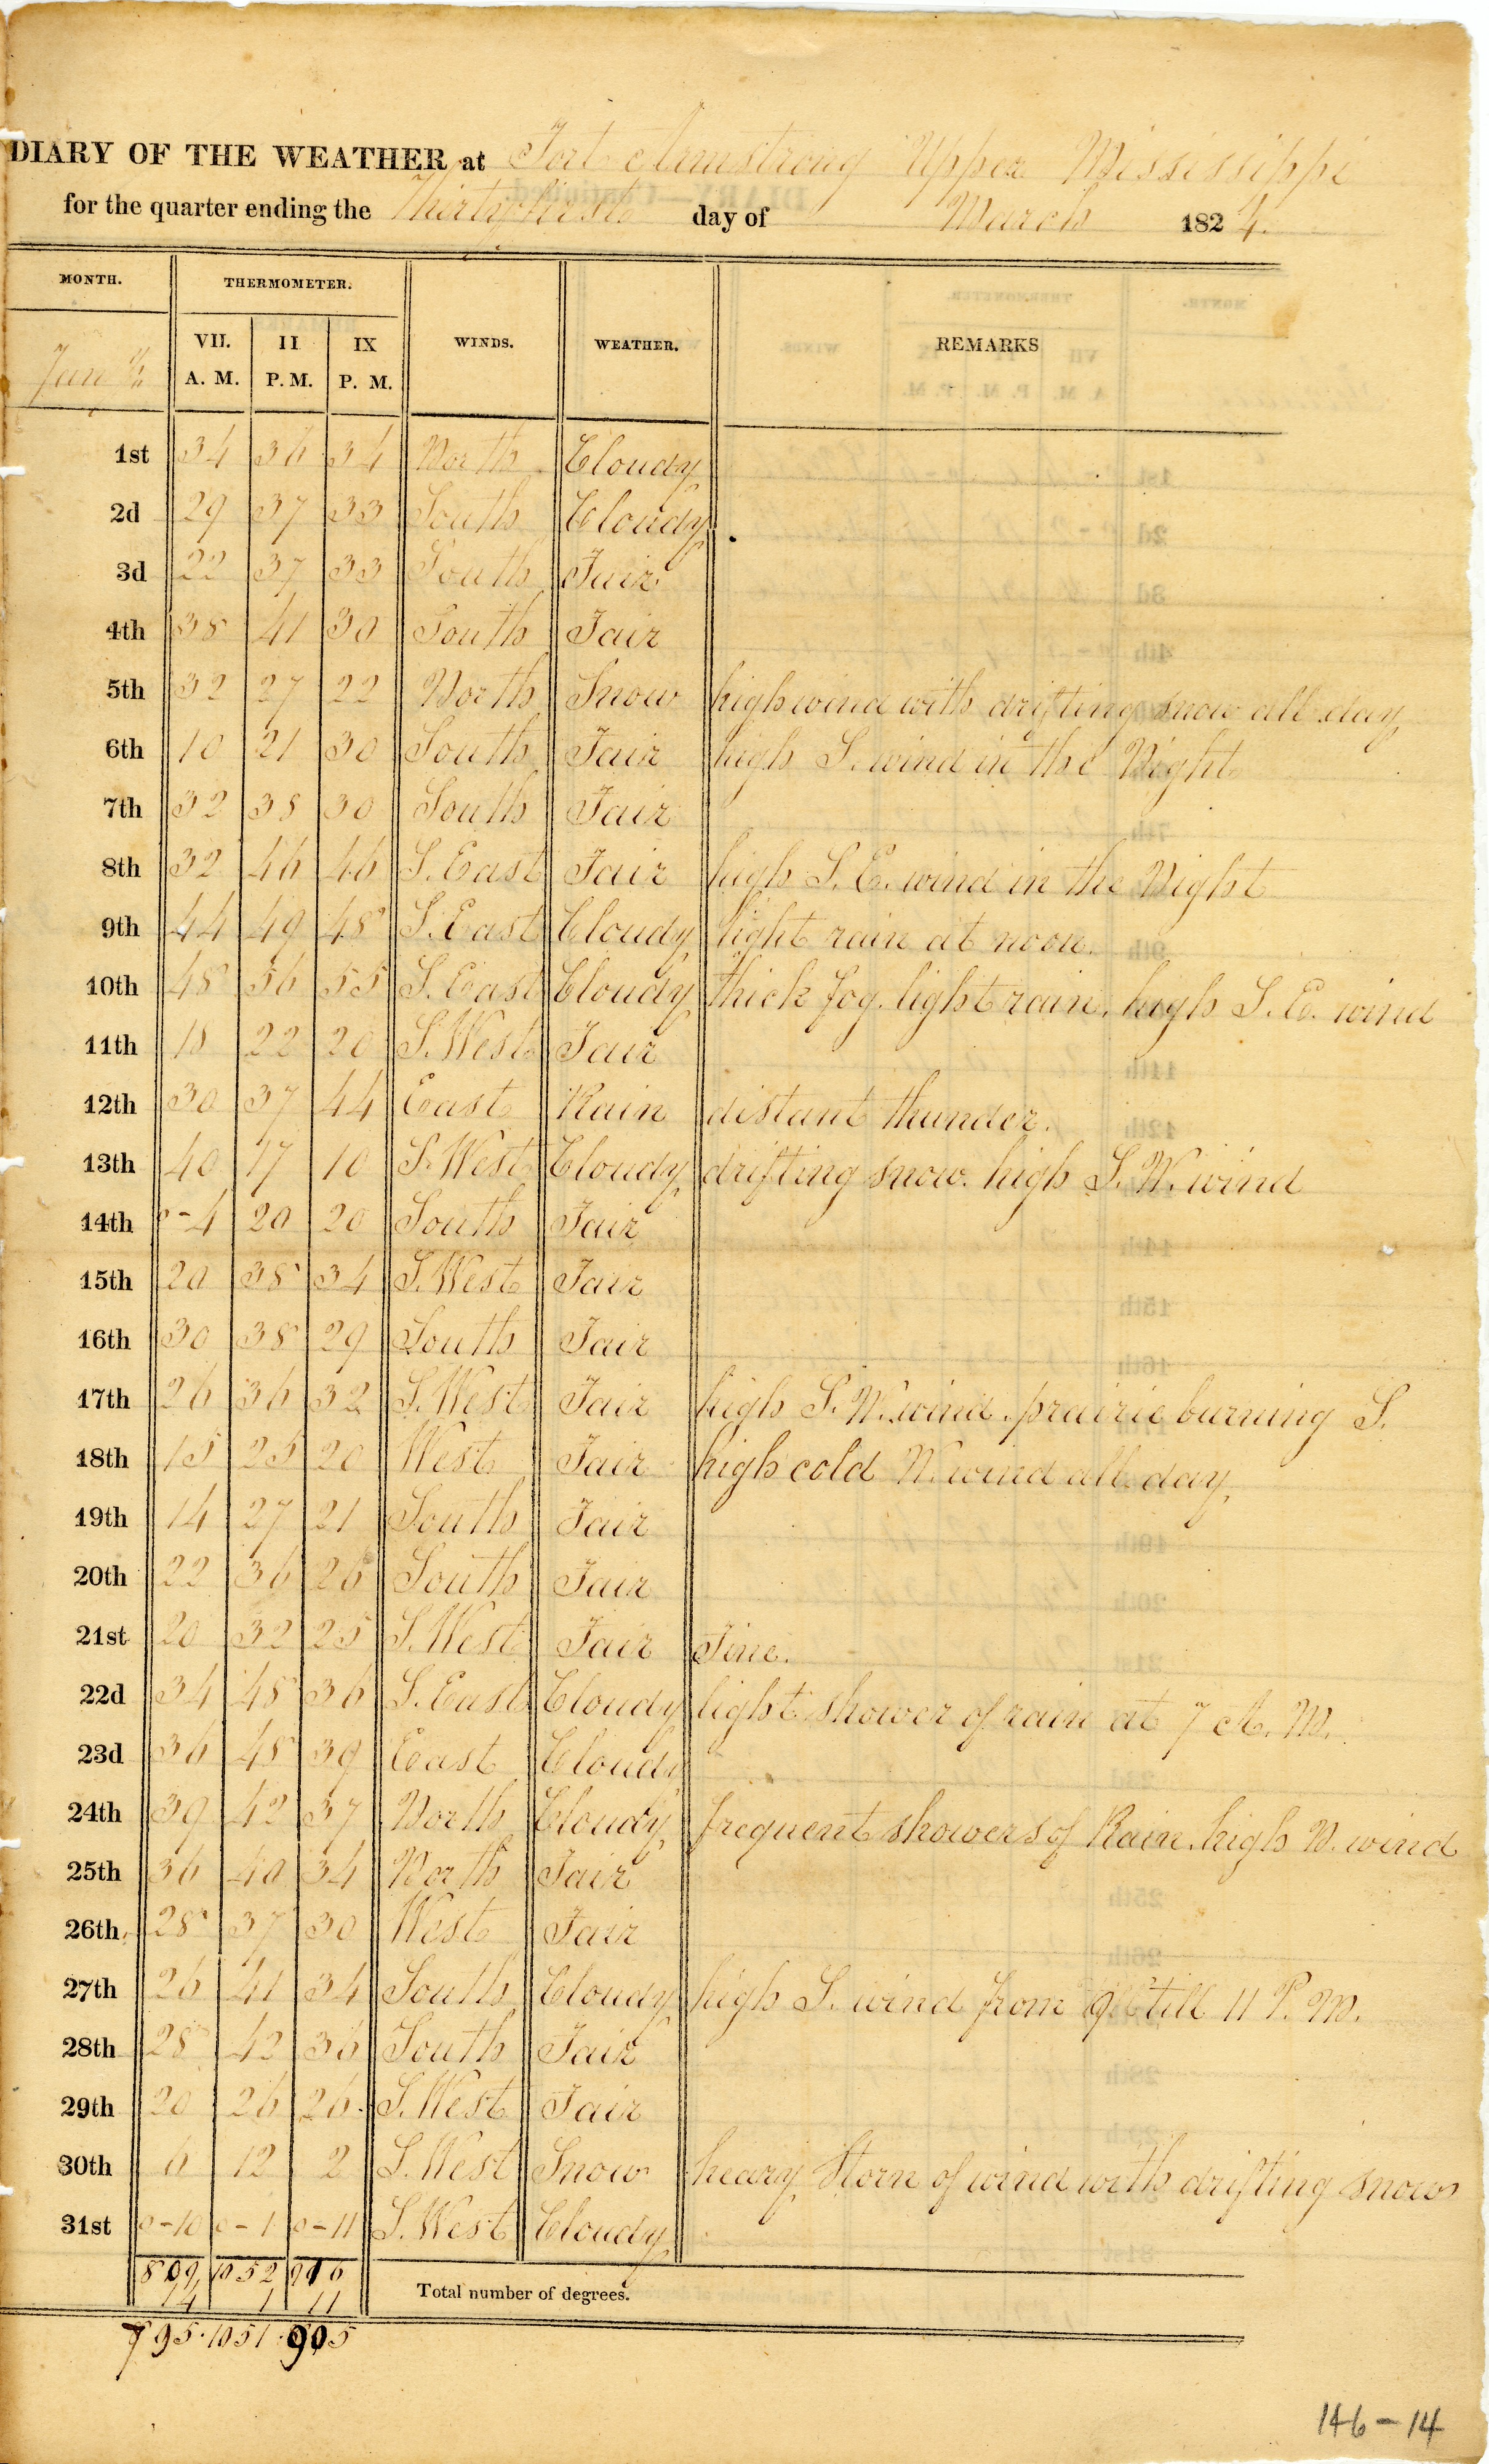 DIARY OF THE WEATHER at Fort Armstrong Upper Mississippi
for the quarter ending the Thirty first day of March 1824.
MONTH. THERMOMETER. WINDS. WEATHER. REMARKS
VII. A. M. II P. M. IX P. M.
1st 34 36 34 North Cloudy
2d 29 37 33 South Cloudy
3d 22 37 33 South Fair
4th 38 41 30 South Fair
5th 32 27 22 North Snow high wind with drifting snow all day
6th 10 21 30 South Fair high S. wind in the Night
7th 32 38 30 South Fair
8th 32 46 46 S. East Fair high S. E. wind in the Night
9th 44 49 48 S. East Cloudy light rain at noon.
10th 48 56 55 S. East Cloudy thick fog. light rain. high S. E. wind
11th 18 22 20 S. West Fair
12th 30 37 44 East Rain distant thunder.
13th 40 17 10 S. West Cloudy drifting snow. high S. W. wind
14th 0-4 20 20 South Fair
15th 20 38 34 S. West Fair
16th 30 38 29 South Fair
17th 26 36 32 S. West Fair high S. W. wind. prairie burning S.
18th 15 25 20 West Fair high cold W. wind all day
19th 14 27 21 South Fair
20th 22 36 26 South Fair
21st 20 32 25 S. West Fair Fine.
22d 34 48 36 S. East Cloudy light shower of rain at 7 A. M.
23d 36 48 39 East Cloudy
24th 39 42 37 North Cloudy frequent showers of Rain. high N. wind
25th 36 40 34 North Fair
26th 28 37 30 West Fair
27th 26 41 34 South Cloudy high S. wind from 9 till 11 P. M.
28th 28 42 36 South Fair
29th 20 26 26 S. West Fair
30th 6 12 2 S. West Snow heavy Storn of wind with drifting snow
31st 0-10 0-1 0-11 S. West Cloudy
809 1052 916 Total number of degrees.
14 1 11
795. 1051. 905
146-14